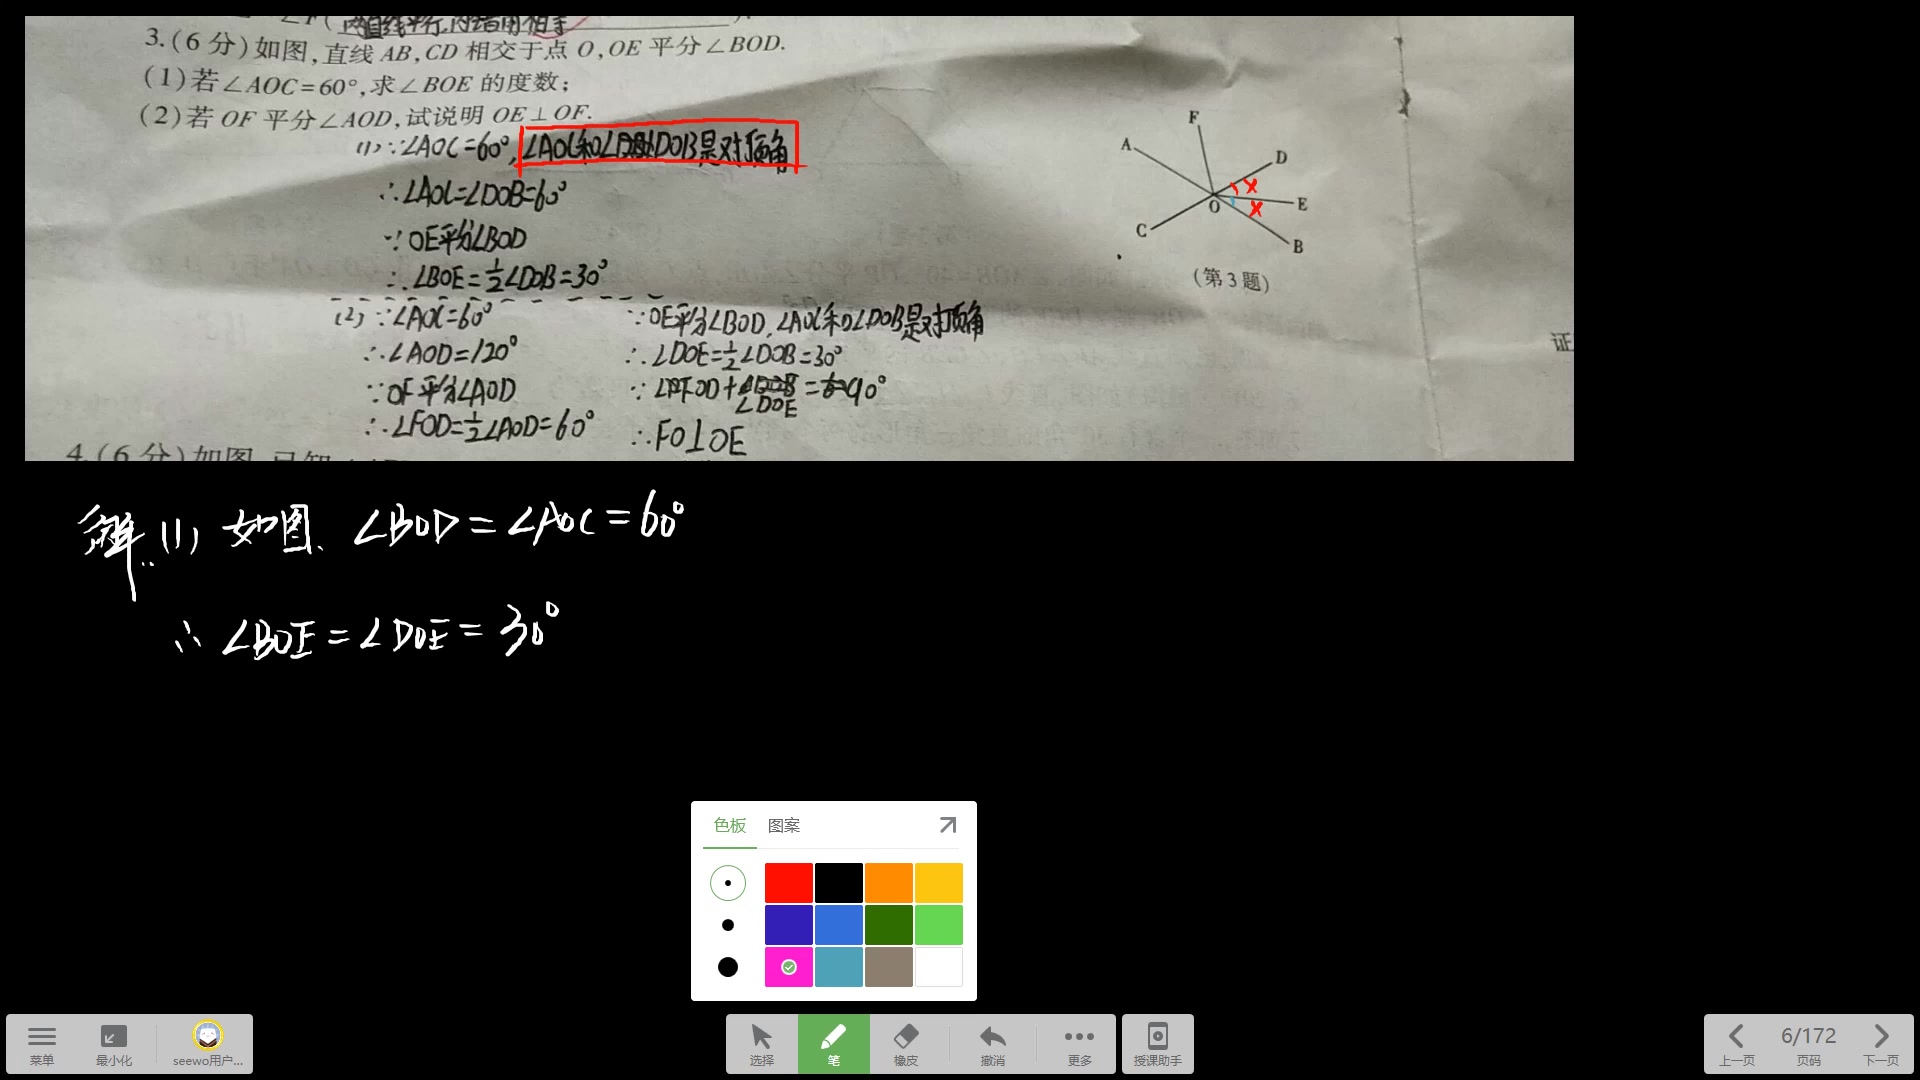 两直线平行,内错角相等
3.(6分)如图,直线AB,CD相交于点O,OE平分∠BOD.
(1)若∠AOC=60°,求∠BOE的度数;
(2)若OF平分∠AOD,试说明OE⊥OF.
(1)∵∠AOC=60°,∠AOC和∠DOB是对顶角
∴∠AOC=∠DOB=60°
∵OE平分∠BOD
∴∠BOE=½∠DOB=30°
(2)∵∠AOC=60°
∴∠AOD=120°
∵OF平分∠AOD
∴∠FOD=½∠AOD=60°
∵OE平分∠BOD,∠AOC和∠DOB是对顶角
∴∠DOE=½∠DOB=30°
∵∠FOD+∠DOE=90°
∴FO⊥OE
F
A
D
O
E
C
B
x
x
(第3题)
证
4.(6分)如图,已知
解:(1)如图,∠BOD=∠AOC=60°
∴∠BOE=∠DOE=30°
色板 图案
菜单
最小化
seewo用户...
选择
笔
橡皮
撤消
更多
授课助手
上一页
6/172
页码
下一页